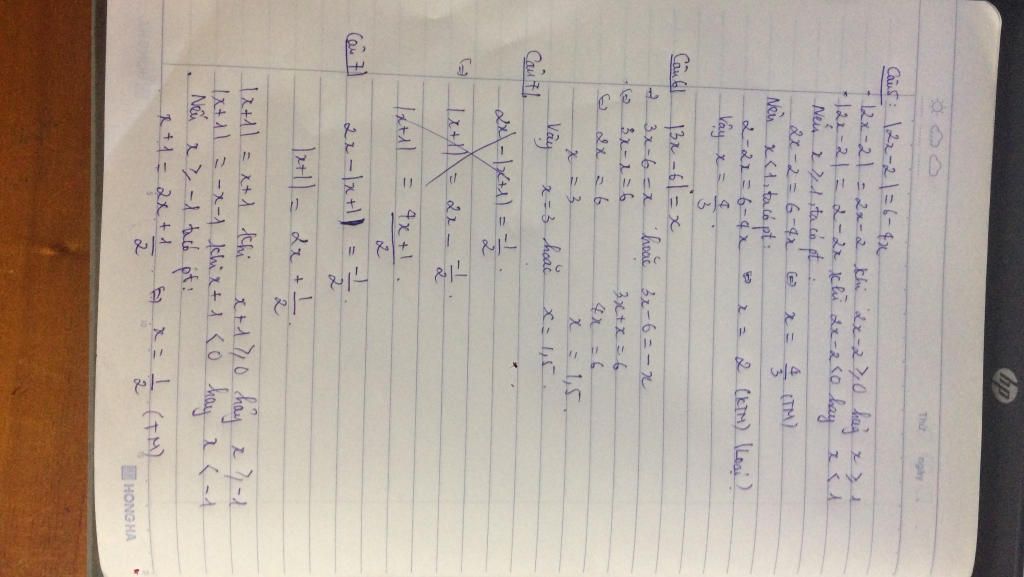 Thứ
ngày
Câu 5: |2x-2| = 6-4x
. |2x-2| = 2x-2 khi 2x-2 ≥ 0 hay x ≥ 1
. |2x-2| = 2-2x khi 2x-2 < 0 hay x < 1
Nếu x ≥ 1, ta có pt:
2x-2 = 6-4x ⇔ x = 4/3 (TM)
Nếu x < 1, ta có pt:
2-2x = 6-4x ⇔ x = 2 (KTM) (Loại)
Vậy x = 4/3.
Câu 6 |3x-6| = x
3x-6 = x hoặc 3x-6 = -x
⇔ 3x-x = 6 3x+x = 6
⇔ 2x = 6 4x = 6
x = 3 x = 1,5.
Vậy x = 3 hoặc x = 1,5.
Câu 7
2x - |x+1| = -1/2
⇔ |x+1| = 2x - -1/2.
|x+1| = 4x+1/2.
Câu 7
2x - |x+1| = -1/2.
|x+1| = 2x + 1/2.
|x+1| = x+1 khi x+1 ≥ 0 hay x ≥ -1
|x+1| = -x-1 khi x+1 < 0 hay x < -1
. Nếu x ≥ -1 ta có pt:
x+1 = 2x+1/2 ⇔ x = 1/2 (TM)
HONG HA
hp